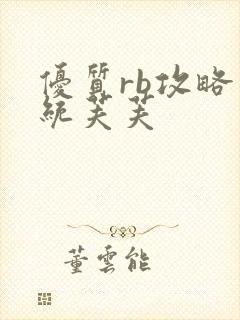 優質rb攻略
統芙芙
董雲能